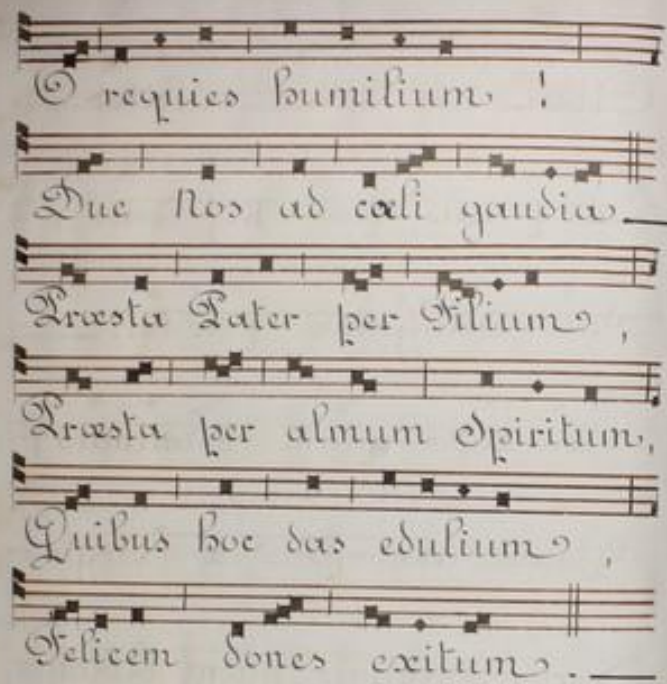 O requies humilium !
Duc Nos ad cœli gaudia.
Præsta Pater per Filium ,
Præsta per almum Spiritum,
Quibus hoc das edulium ,
Felicem dones exitum .